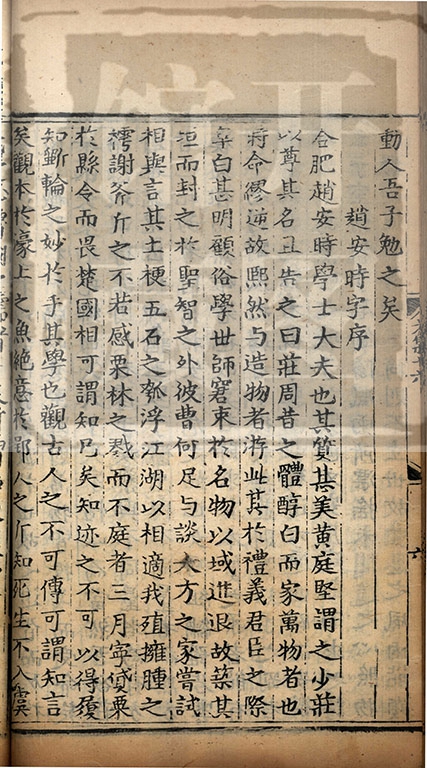 動人吾子勉之矣
趙安時字序
合肥趙安時學士大夫也其質甚美黃庭堅謂之少莊
以尊其名且告之曰莊周昔之體醇白而家萬物者也
時命繆逆故熙然与造物者游此其於禮義君臣之際
皁白甚明顧俗學世師窘束於名物以域進退故築其
垣而封之於聖智之外彼曹何足与談大方之家嘗試
相與言其土梗五石之瓠浮江湖以相適我殖擁腫之
樗謝斧斤之不若感栗林之戮而不庭者三月寧貸粟
於縣令而畏楚國相可謂知已矣知迹之不可以得履
知斲輪之妙於手其學也觀古人之不可傳可謂知言
矣觀本於濠上之魚絶意於郢人之斤知死生不入虞